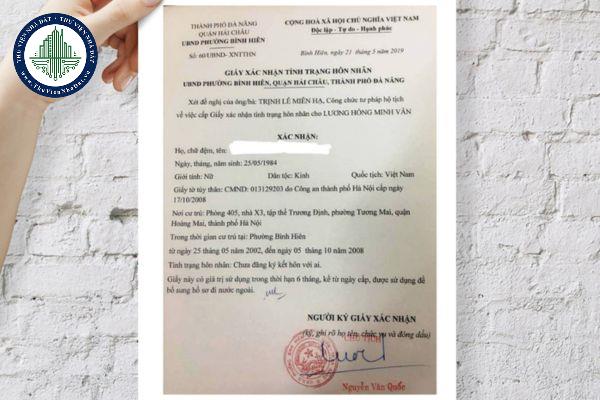 THƯ VIỆN NHÀ ĐẤT * THƯ VIỆN NHÀ ĐẤT
www.ThuVienNhaDat.vn
THÀNH PHỐ ĐÀ NẴNG
QUẬN HẢI CHÂU
UBND PHƯỜNG BÌNH HIÊN
Số: 60/UBND- XNTTHN
CỘNG HOÀ XÃ HỘI CHỦ NGHĨA VIỆT NAM
Độc lập - Tự do - Hạnh phúc
Bình Hiên, ngày 21 tháng 5 năm 2019
GIẤY XÁC NHẬN TÌNH TRẠNG HÔN NHÂN
UBND PHƯỜNG BÌNH HIÊN, QUẬN HẢI CHÂU, THÀNH PHỐ ĐÀ NẴNG
Xét đề nghị của ông/bà: TRỊNH LÊ MIÊN HẠ, Công chức tư pháp hộ tịch
về việc cấp Giấy xác nhận tình trạng hôn nhân cho LƯƠNG HỒNG MINH VÂN
XÁC NHẬN:
Họ, chữ đệm, tên:
Ngày, tháng, năm sinh: 25/05/1984
Giới tính: Nữ Dân tộc: Kinh Quốc tịch: Việt Nam
Giấy tờ tùy thân: CMND: 013129203 do Công an thành phố Hà Nội cấp ngày
17/10/2008
Nơi cư trú: Phòng 405, nhà X3, tập thể Trương Định, phường Tương Mai, quận
Hoàng Mai, thành phố Hà Nội
Trong thời gian cư trú tại: Phường Bình Hiên
từ ngày 25 tháng 05 năm 2002, đến ngày 05 tháng 10 năm 2008
Tình trạng hôn nhân: Chưa đăng ký kết hôn với ai.
Giấy này có giá trị sử dụng trong thời hạn 6 tháng, kể từ ngày cấp, được sử dụng để
bổ sung hồ sơ đi nước ngoài.
NGƯỜI KÝ GIẤY XÁC NHẬN
(ký, ghi rõ họ tên, chức vụ và đóng dấu)
CHỦ TỊCH
Nguyễn Văn Quốc